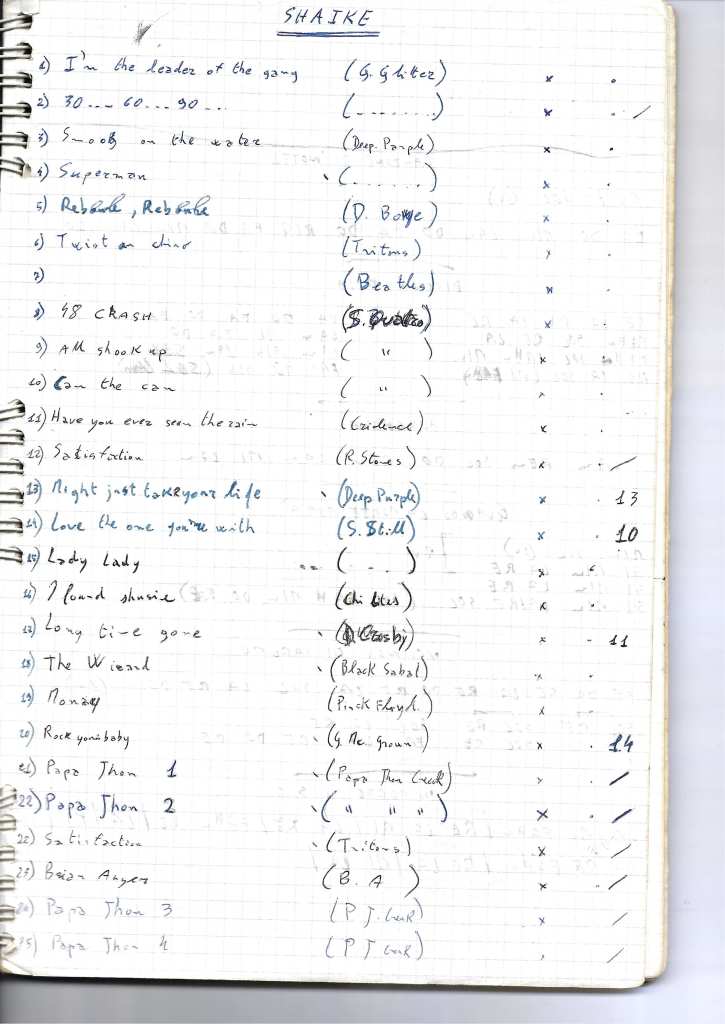 SHAIKE
1) I'm the leader of the gang (G. Glitter) x .
2) 30 ... 60 ... 90 ... (........) x . /
3) Smook on the water (Deep. Purple) x .
4) Superman (.......) x .
5) Rebbele, Rebbele (D. Bowe) x .
6) Twist an chino (Tritons) x .
7) (Beatles) x .
8) 48 CRASH (S. Quatro) x .
9) All shook up ( " ) x .
10) Can the can ( " ) x .
11) Have you ever seen the rain (Cridence) x .
12) Satisfaction (R. Stones) x . /
13) Might just take your life (Deep Purple) x . 13
14) Love the one you're with (S. Still) x . 10
15) Lady Lady (. . .) x .
16) I found shusie (Chi lites) x .
17) Long time gone (D Crosby) x - 11
18) The Wizard (Black Sabat) x .
19) Money (Pinck Floyd.) x .
20) Rock your baby (G. Mc. Grown) x . 14
21) Papa Jhon 1 (Papa Jhon Creek) x . /
22) Papa Jhon 2 (" " ") x . /
22) Satisfaction (Tritons) x . /
23) Brian Auger (B. A) x . /
24) Papa Jhon 3 (P J. Creek) x /
25) Papa Jhon 4 (P J Creek) . /